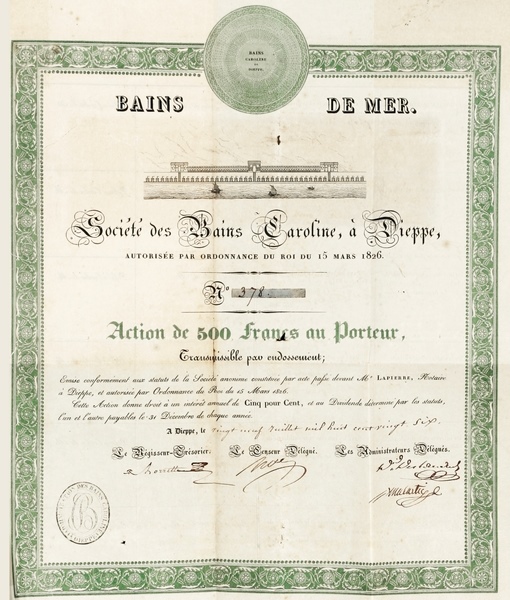 BAINS
CAROLINE
DE
DIEPPE.
BAINS DE MER.
Société des Bains Caroline, à Dieppe,
AUTORISÉE PAR ORDONNANCE DU ROI DU 15 MARS 1826.
N° 378
Action de 500 Francs au Porteur,
Transmissible par endossement;
Emise conformément aux statuts de la Société anonyme constituée par acte passé devant Me LAPIERRE, Notaire
à Dieppe, et autorisée par Ordonnance du Roi du 15 Mars 1826.
Cette Action donne droit à un intérêt annuel de Cinq pour Cent, et au Dividende déterminé par les statuts,
l'un et l'autre payables le 31 Décembre de chaque année.
A Dieppe, le vingt neuf juillet mil huit cent vingt six.
Le Régisseur-Trésorier, Le Censeur Délégué. Les Administrateurs Délégués.